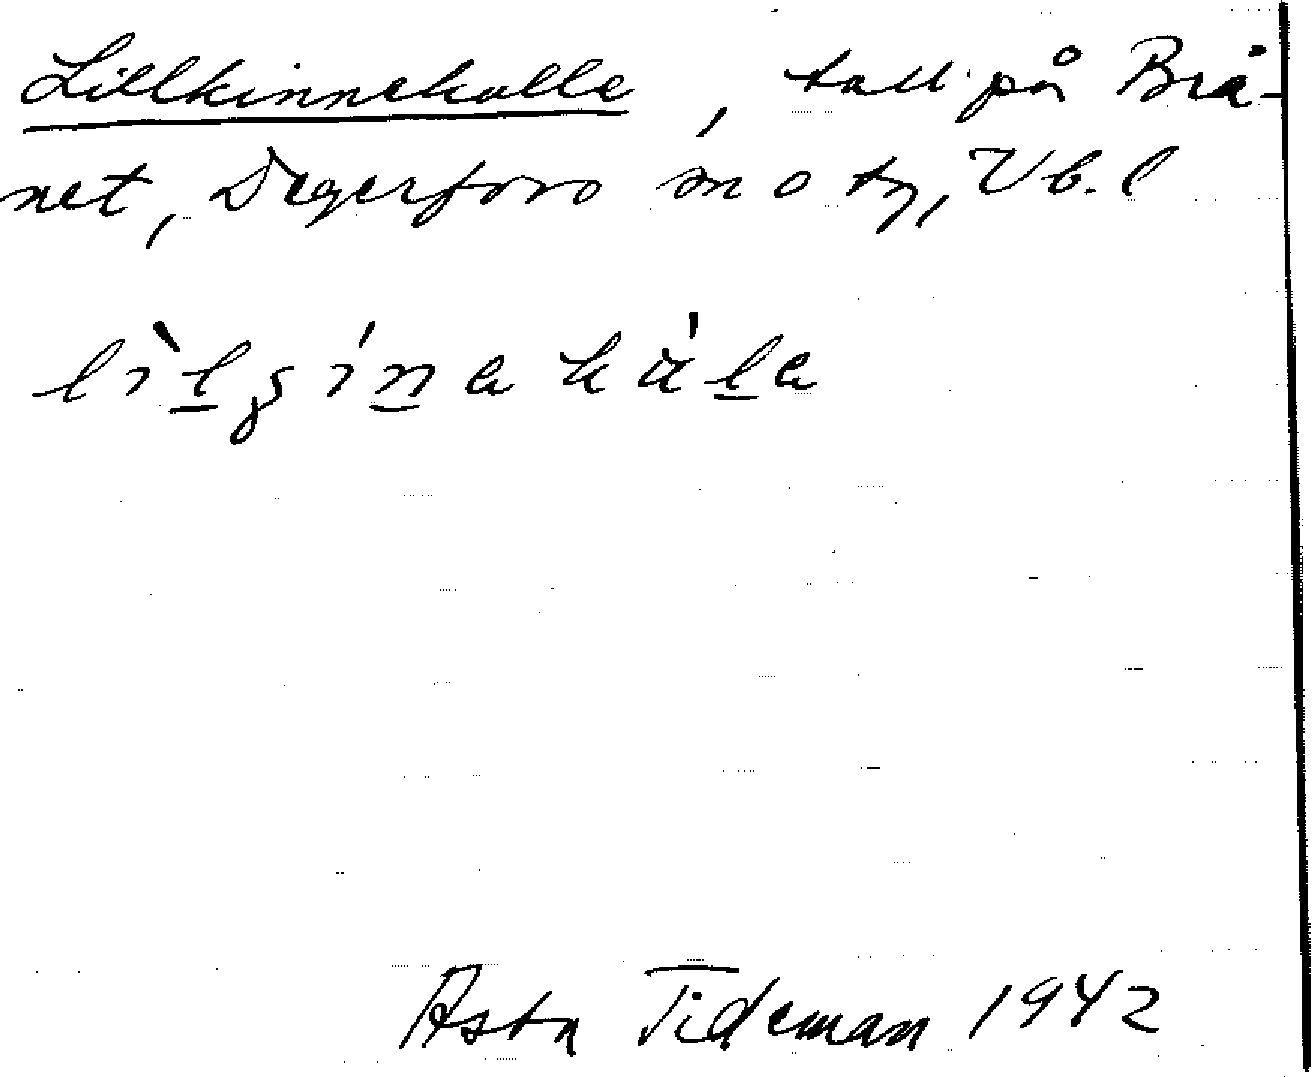 Lillkinnekulle, tall på Brå-
net, Degerfors sn o tg, Vb. l
Asta Tideman 1942